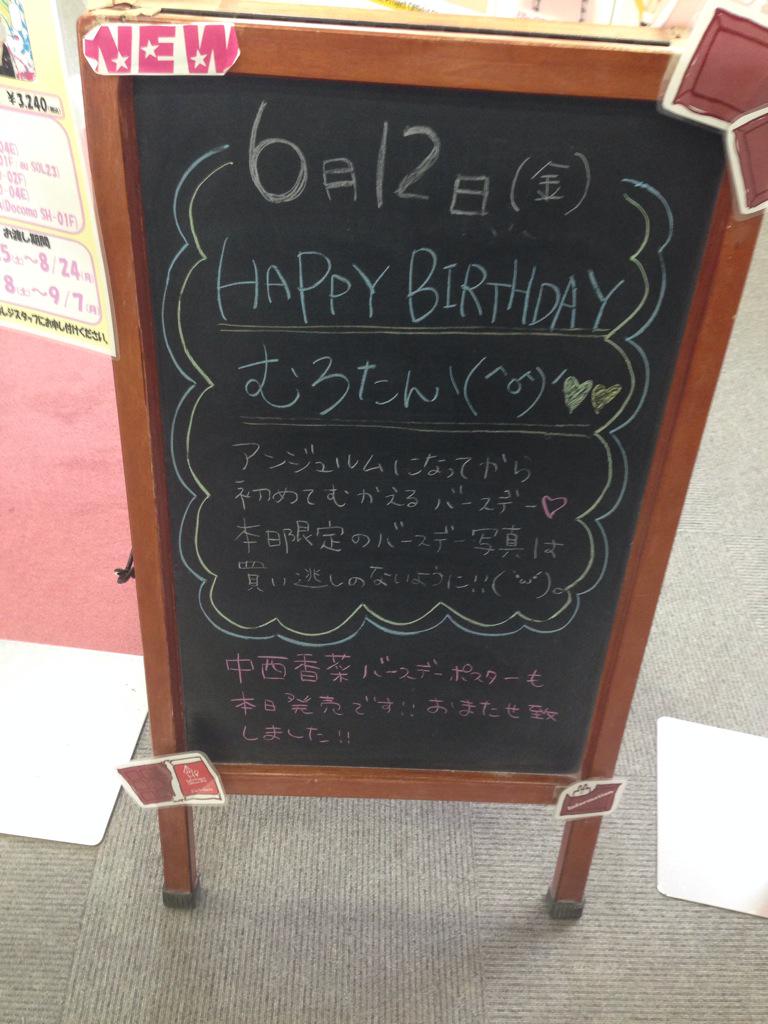 NEW
¥3,240(税込)
au SOL23)
Docomo SH-01F)
お渡し期間
5(土)～8/24(月)
8(土)～9/7(月)
レジスタッフにお申し付けください。
6月12日(金)
HAPPY BIRTHDAY
むろたんヽ(^o^)
アンジュルムになってから
初めてむかえるバースデー♡
本日限定のバースデー写真は
買い逃しのないように!!(´･ω･`)。
中西香菜バースデーポスターも
本日発売です!!おまたせ致
しました!!
Information